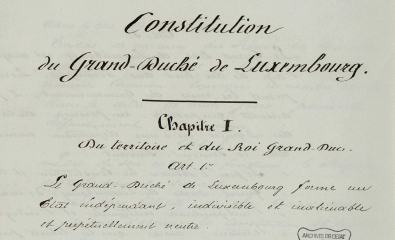 Constitution
du Grand-Duché de Luxembourg.
Chapitre I.
Du territoire et du Roi Grand-Duc.
Art 1er
Le Grand-Duché de Luxembourg forme un
État indépendant, indivisible et inaliénable
et perpétuellement neutre.
ARCHIVES DE L'ETAT